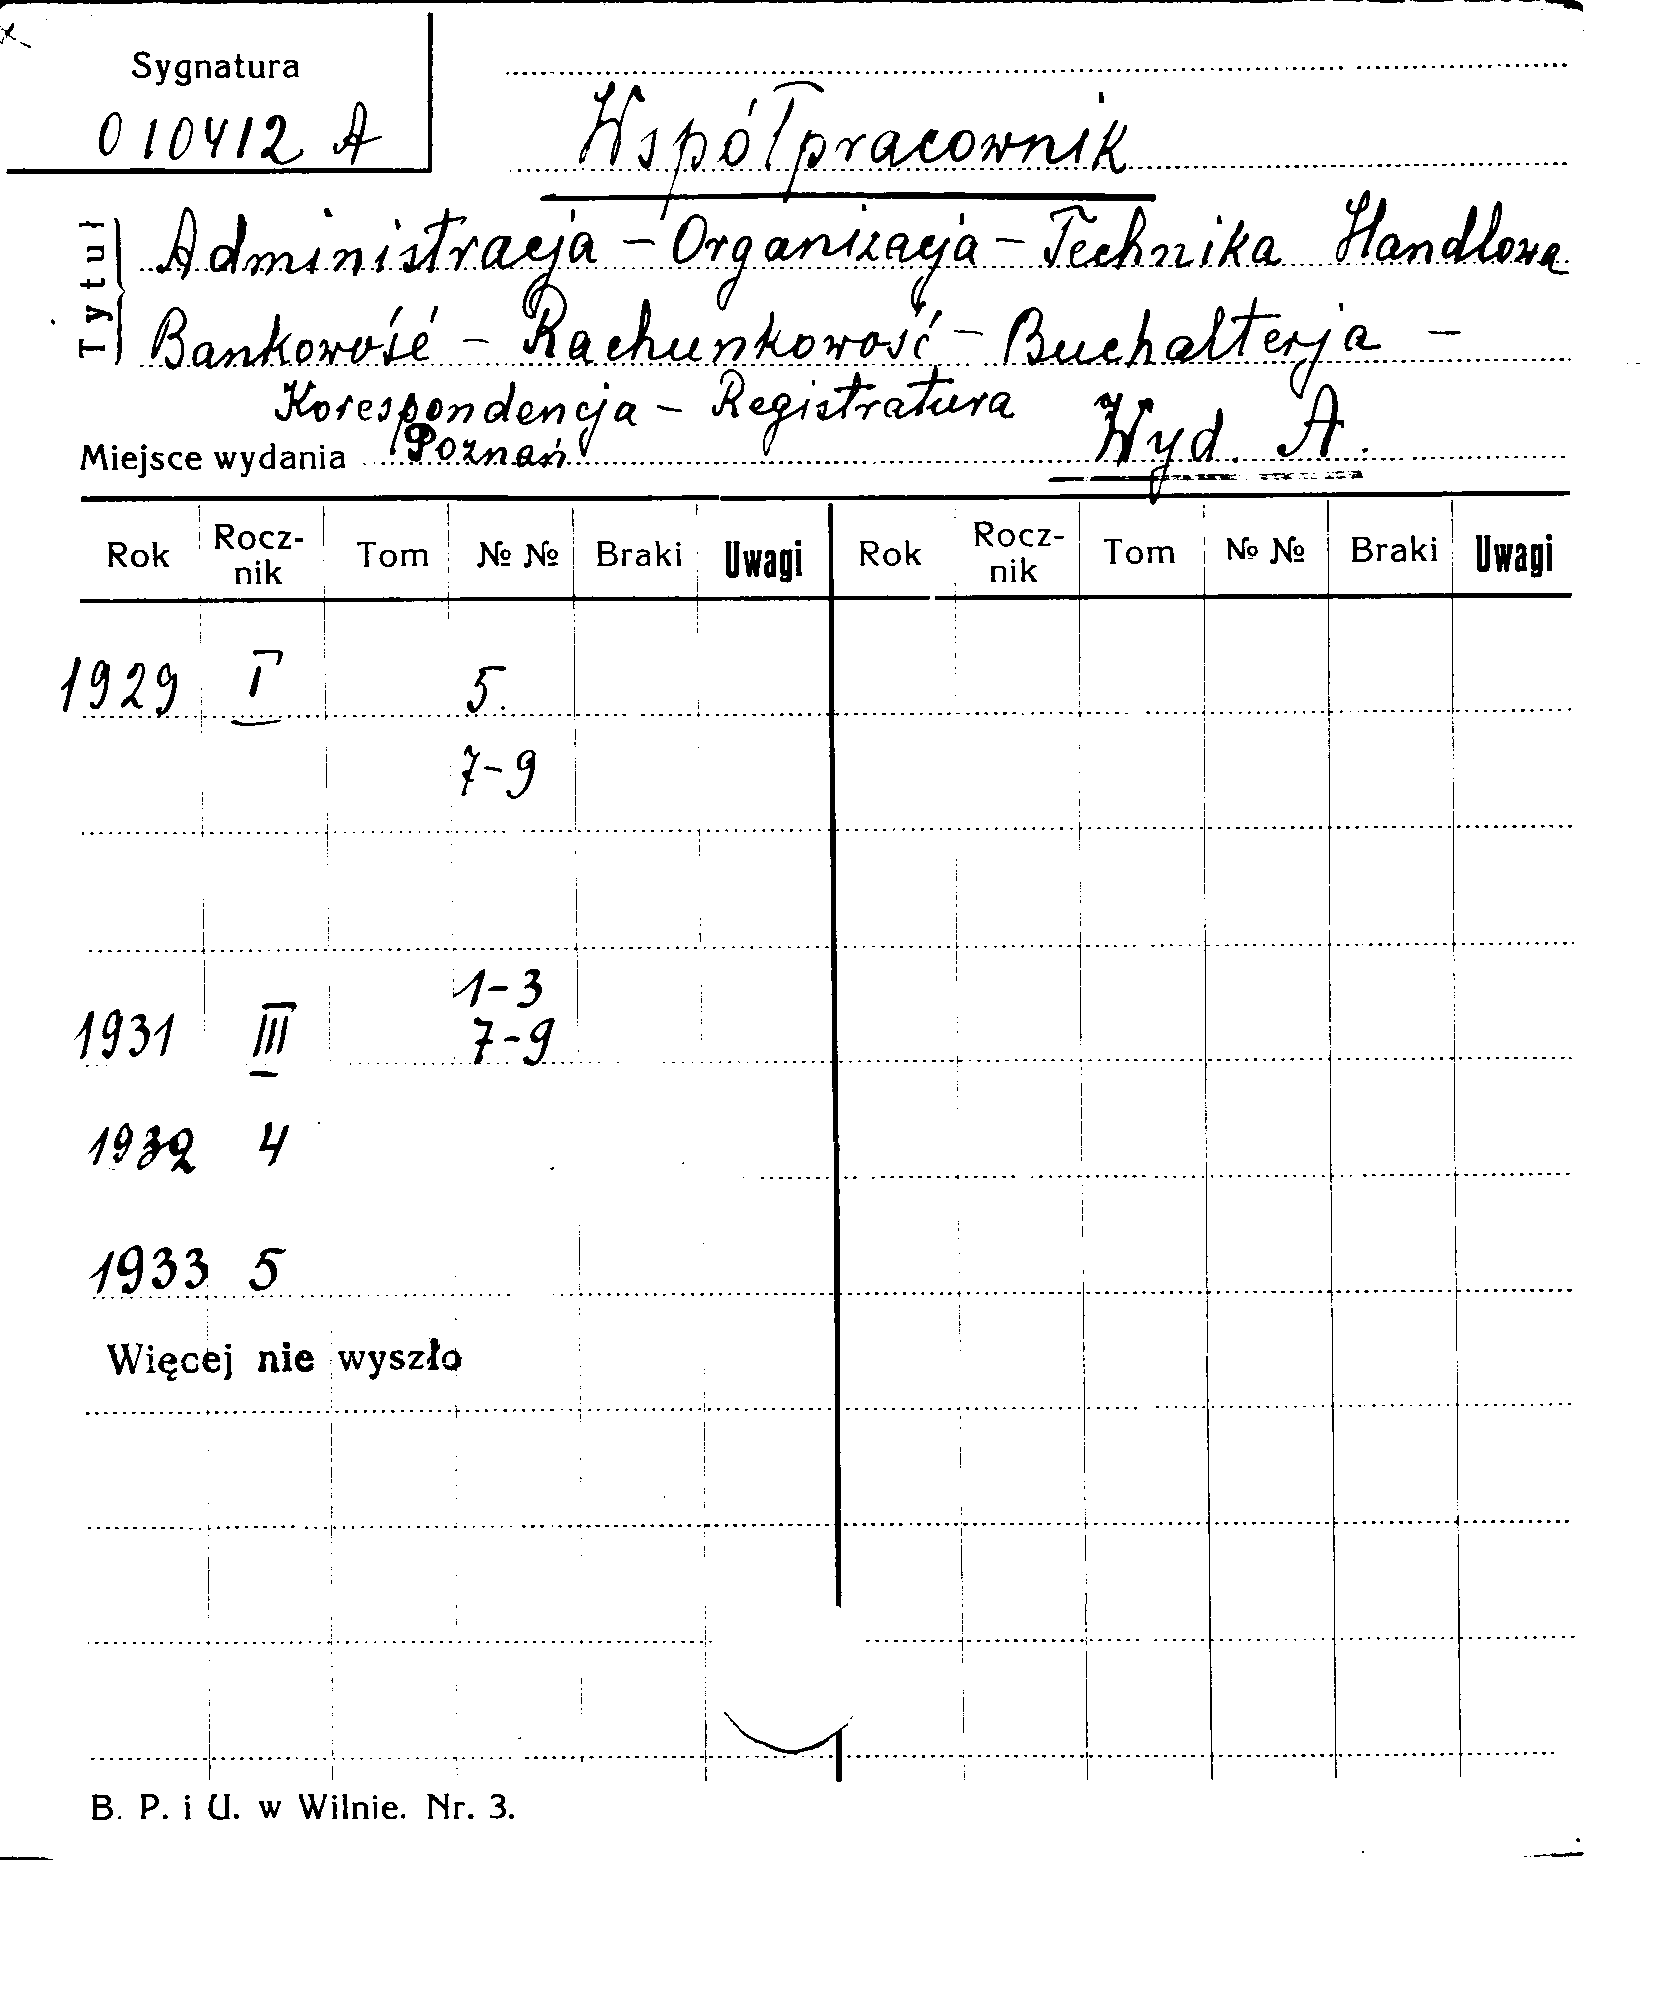 Sygnatura
010412 A
Współpracownik
Tytuł
Administracja – Organizacja – Technika Handlowa
Bankowość – Rachunkowość – Buchalterja –
Korespondencja – Registratura
Wyd. A.
Miejsce wydania Poznań
Rok Rocz-nik Tom № № Braki Uwagi Rok Rocz-nik Tom № № Braki Uwagi
1929 I 5.
7-9
1-3
1931 III 7-9
1932 4
1933 5
Więcej nie wyszło
B. P. i U. w Wilnie. Nr. 3.